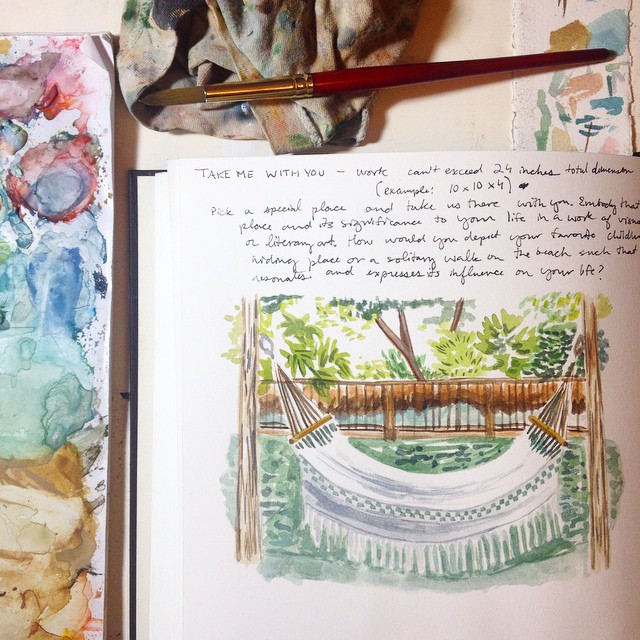 TAKE ME WITH YOU - work can't exceed 24 inches total dimension
(example: 10 x 10 x 4)
Pick a special place and take us there with you. Embody that
place and its significance to your life in a work of visual
or literary art. How would you depict your favorite
hiding place or a solitary walk on the beach such that
resonates and expresses its influence on your life?